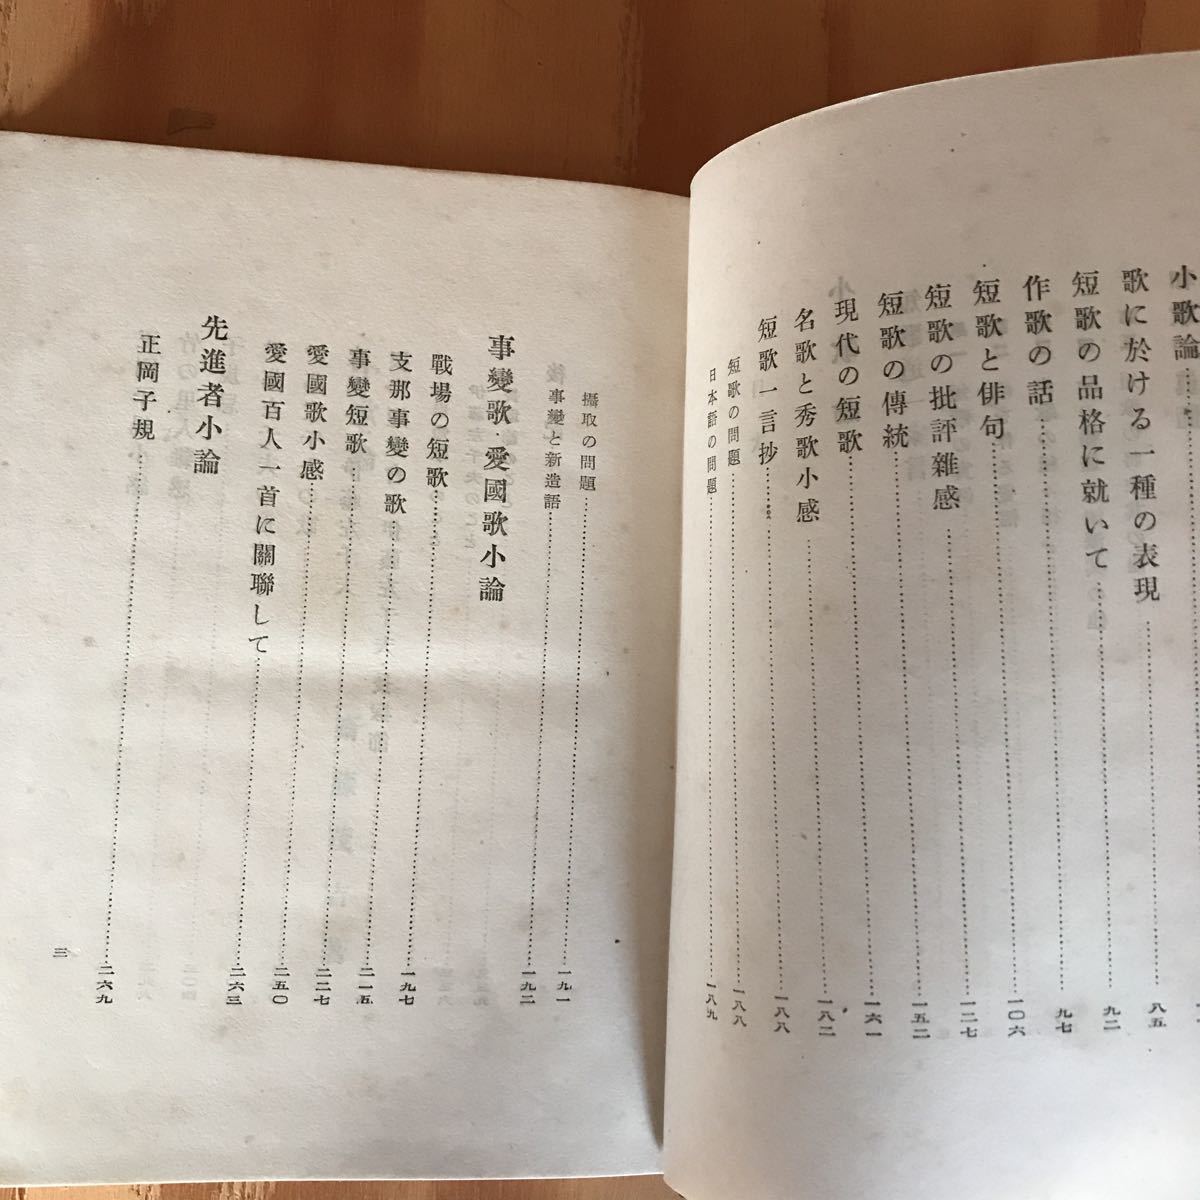 小歌論
歌に於ける一種の表現 八五
短歌の品格に就いて 九二
作歌の話 九七
短歌と俳句 一〇六
短歌の批評雜感 一二七
短歌の傳統 一五二
現代の短歌 一六一
名歌と秀歌小感 一八二
短歌一言抄 一八八
短歌の問題 一八八
日本語の問題 一八九
攝取の問題 一九一
事變と新造語 一九二
事變歌・愛國歌小論
戰場の短歌 一九七
支那事變の歌 二一五
事變短歌 二二七
愛國歌小感 二五〇
愛國百人一首に關聯して 二六三
先進者小論
正岡子規 二六九
三